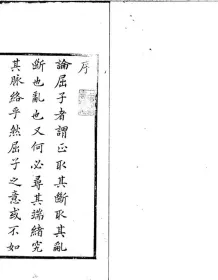 序
論屈子者謂正取其斷取其亂
斷也亂也又何必尋其端緒究
其脈絡乎然屈子之意或不如